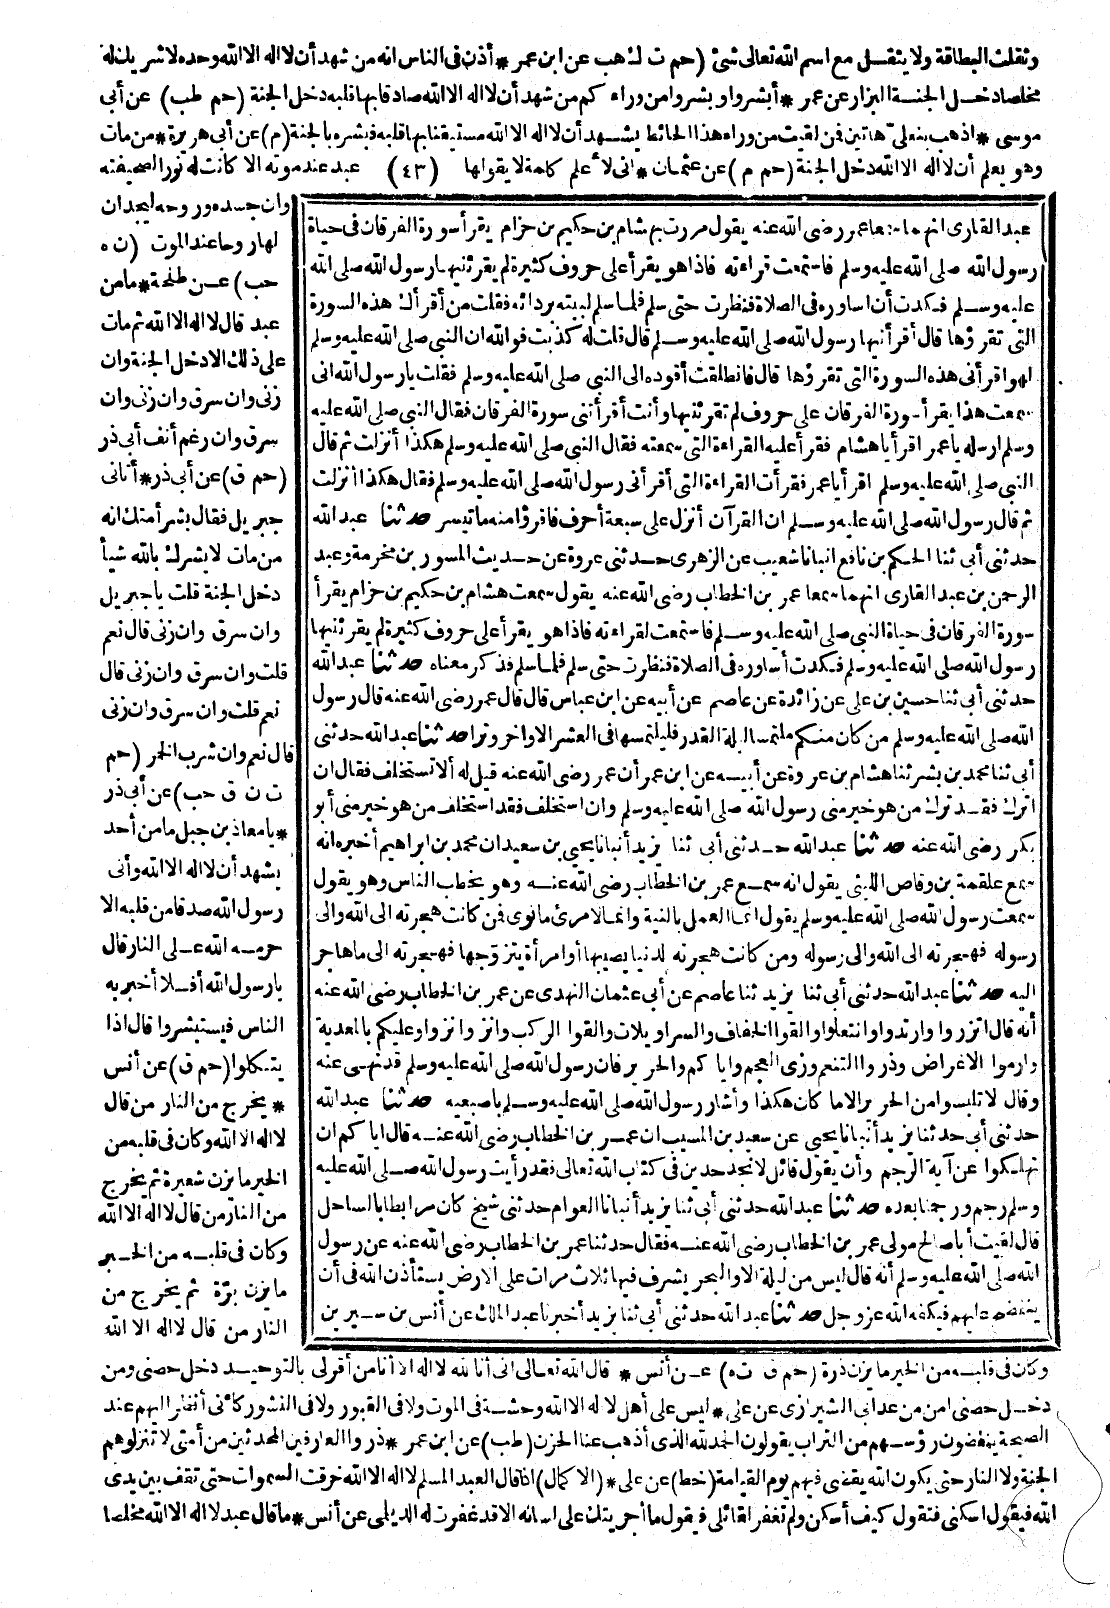 وثقلت البطاقة ولا يثقل مع اسم الله تعالى شئ (حم ت ك هب عن ابن عمر * أذن فى الناس انه من شهد أن لا اله الا الله وحده لا شريك له
مخلصا دخل الجنة البزار عن عمر * أبشروا وبشروا من وراءكم من شهد أن لا اله الا الله صادقا بها قلبه دخل الجنة (حم طب) عن أبى
موسى * اذهب بنعلى هاتين فمن لقيت من وراء هذا الحائط يشهد أن لا اله الا الله مستيقنا بها قلبه فبشره بالجنة (م) عن أبى هريرة * من مات
وهو يعلم أن لا اله الا الله دخل الجنة (حم م) عن عثمان * انى لأعلم كلمة لا يقولها (٤٣) عبد عند موته الا كانت له نور الصحيفته
وان جسده وروحه ليجدان
لها روحا عند الموت (ن ه
حب) عن طلحة * ما من
عبد قال لا اله الا الله ثم مات
على ذلك الا دخل الجنة وان
زنى وان سرق وان زنى وان
سرق وان رغم أنف أبى ذر
(حم ق) عن أبى ذر * أتانى
جبريل فقال بشر أمتك انه
من مات لا يشرك بالله شيأ
دخل الجنة قلت يا جبريل
وان سرق وان زنى قال نعم
قلت وان سرق وان زنى قال
نعم قلت وان سرق وان زنى
قال نعم وان شرب الخمر (حم
ت ن ق حب) عن أبى ذر
* يا معاذ بن جبل ما من أحد
يشهد أن لا اله الا الله وأنى
رسول الله صدقا من قلبه الا
حرمه الله على النار قال
يا رسول الله أفلا أخبر به
الناس فيستبشروا قال اذا
يتكلوا (حم ق) عن أنس
* يخرج من النار من قال
لا اله الا الله وكان فى قلبه من
الخير ما يزن شعيرة ثم يخرج
من النار من قال لا اله الا الله
وكان فى قلبه من الخير
ما يزن برة ثم يخرج من
النار من قال لا اله الا الله
عبد القارى انهما سمعا عمر رضى الله عنه يقول مررت بهشام بن حكيم بن حزام يقرأ سورة الفرقان فى حياة
رسول الله صلى الله عليه وسلم فاستمعت قراءته فاذا هو يقرأ على حروف كثيرة لم يقرئنيها رسول الله صلى الله
عليه وسلم فكدت أن اساوره فى الصلاة فنظرت حتى سلم فلما سلم لببته بردائه فقلت من أقرأك هذه السورة
التى تقرؤها قال أقرأنيها رسول الله صلى الله عليه وسلم قال قلت له كذبت فوالله ان النبى صلى الله عليه وسلم
لهو اقرأنى هذه السورة التى تقرؤها قال فانطلقت أقوده الى النبى صلى الله عليه وسلم فقلت يا رسول الله انى
سمعت هذا يقرأ سورة الفرقان على حروف لم تقرئنيها وأنت أقرأتنى سورة الفرقان فقال النبى صلى الله عليه
وسلم ارسله يا عمر اقرأ يا هشام فقرأ عليه القراءة التى سمعته فقال النبى صلى الله عليه وسلم هكذا أنزلت ثم قال
النبى صلى الله عليه وسلم اقرأ يا عمر فقرأت القراءة التى أقرأنى رسول الله صلى الله عليه وسلم فقال هكذا انزلت
ثم قال رسول الله صلى الله عليه وسلم ان القرآن أنزل على سبعة أحرف فاقرؤا منه ما تيسر حدثنا عبد الله
حدثنى أبى ثنا الحكم بن نافع انبانا شعيب عن الزهرى حدثنى عروة عن حديث المسور بن مخرمة وعبد
الرحمن بن عبد القارى انهما سمعا عمر بن الخطاب رضى الله عنه يقول سمعت هشام بن حكيم بن حزام يقرأ
سورة الفرقان فى حياة النبى صلى الله عليه وسلم فاستمعت لقراءته فاذا هو يقرأ على حروف كثيرة لم يقرئنيها
رسول الله صلى الله عليه وسلم فكدت أساوره فى الصلاة فنظرت حتى سلم فلما سلم فذكر معناه حدثنا عبد الله
حدثنى أبى ثنا حسين بن على عن زائدة عن عاصم عن أبيه عن ابن عباس قال قال عمر رضى الله عنه قال رسول
الله صلى الله عليه وسلم من كان منكم ملتمسا ليلة القدر فليلتمسها فى العشر الاواخر وترا حدثنا عبد الله حدثنى
أبى ثنا محمد بن بشر ثنا هشام بن عروة عن أبيه عن ابن عمر أن عمر رضى الله عنه قيل له ألا تستخلف فقال ان
اترك فقد ترك من هو خير منى رسول الله صلى الله عليه وسلم وان استخلف فقد استخلف من هو خير منى أبو
بكر رضى الله عنه حدثنا عبد الله حدثنى أبى ثنا يزيد أنبانا يحيى بن سعيد ان محمد بن ابراهيم أخبره انه
سمع علقمة بن وقاص الليثى يقول انه سمع عمر بن الخطاب رضى الله عنه وهو يخطب الناس وهو يقول
سمعت رسول الله صلى الله عليه وسلم يقول انما العمل بالنية وانما لامرئ ما نوى فمن كانت هجرته الى الله والى
رسوله فهجرته الى الله والى رسوله ومن كانت هجرته لدنيا يصيبها أو امرأة يتزوجها فهجرته الى ما هاجر
اليه حدثنا عبد الله حدثنى أبى ثنا يزيد ثنا عاصم عن أبى عثمان النهدى عن عمر بن الخطاب رضى الله عنه
أنه قال اتزروا وارتدوا وانتعلوا والقوا الخفاف والسراويلات والقوا الركب وانزوا نزوا وعليكم بالمعدية
وارموا الاغراض وذروا التنعم وزى العجم واياكم والحرير فان رسول الله صلى الله عليه وسلم قد نهى عنه
وقال لا تلبسوا من الحرير الا ما كان هكذا وأشار رسول الله صلى الله عليه وسلم باصبعيه حدثنا عبد الله
حدثنى أبى حدثنا يزيد أنبانا يحيى عن سعيد بن المسيب ان عمر بن الخطاب رضى الله عنه قال اياكم ان
تهلكوا عن آية الرجم وأن يقول قائل لا نجد حدين فى كتاب الله تعالى فقد رأيت رسول الله صلى الله عليه
وسلم رجم ورجمنا بعده حدثنا عبد الله حدثنى أبى ثنا يزيد أنبانا العوام حدثنى شيخ كان مرابطا بالساحل
قال لقيت أبا صالح مولى عمر بن الخطاب رضى الله عنه فقال حدثنا عمر بن الخطاب رضى الله عنه عن رسول
الله صلى الله عليه وسلم أنه قال ليس من ليلة الا والبحر يشرف فيها ثلاث مرات على الارض يستأذن الله فى أن
ينفضخ عليهم فيكفه الله عز وجل حدثنا عبد الله حدثنى أبى ثنا يزيد أخبرنا عبد الملك عن أنس بن سيرين
وكان فى قلبه من الخير ما يزن ذرة (حم ق ت ه) عن أنس * قال الله تعالى انى أنا لله لا اله الا أنا من أقر لى بالتوحيد دخل حصنى ومن
دخل حصنى امن من عذابى الشيرازى عن على * ليس على أهل لا اله الا الله وحشة فى الموت ولا فى القبور ولا فى النشور كأنى أنظر اليهم عند
الصيحة ينفضون رؤسهم من التراب يقولون الحمد لله الذى أذهب عنا الحزن (طب) عن ابن عمر * ذروا العارفين المحدثين من أمتى لا تنزلوهم
الجنة ولا النار حتى يكون الله يقضى فيهم يوم القيامة (خط) عن على * (الاكمال) اذا قال العبد المسلم لا اله الا الله خرقت السموات حتى تقف بين يدى
الله فيقول اسكنى فتقول كيف أسكن ولم تغفر لقائلى فيقول ما أجريتك على لسانه الا قد غفرت له الديلمى عن أنس * ما قال عبد لا اله الا الله مخلصا